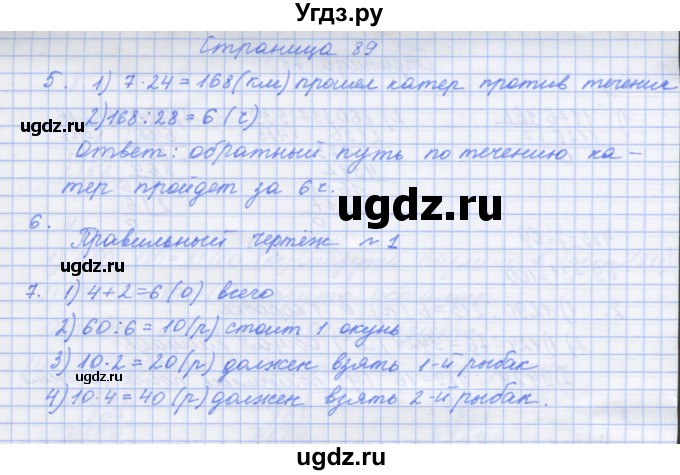 Угдз.ру
Страница 89
5. 1) 7·24=168(км) прошел катер против течения
2) 168:28=6 (ч)
Ответ: обратный путь по течению ка-
тер пройдет за 6 ч.
6.
Правильный чертёж №1
7. 1) 4+2=6 (о) всего
2) 60:6=10(р) стоит 1 окунь
3) 10·2=20(р) должен взять 1-й рыбак
4) 10·4=40 (р) должен взять 2-й рыбак.
ugdz.ru
ugdz.ru
ugdz.ru
ugdz.ru
ugdz.ru